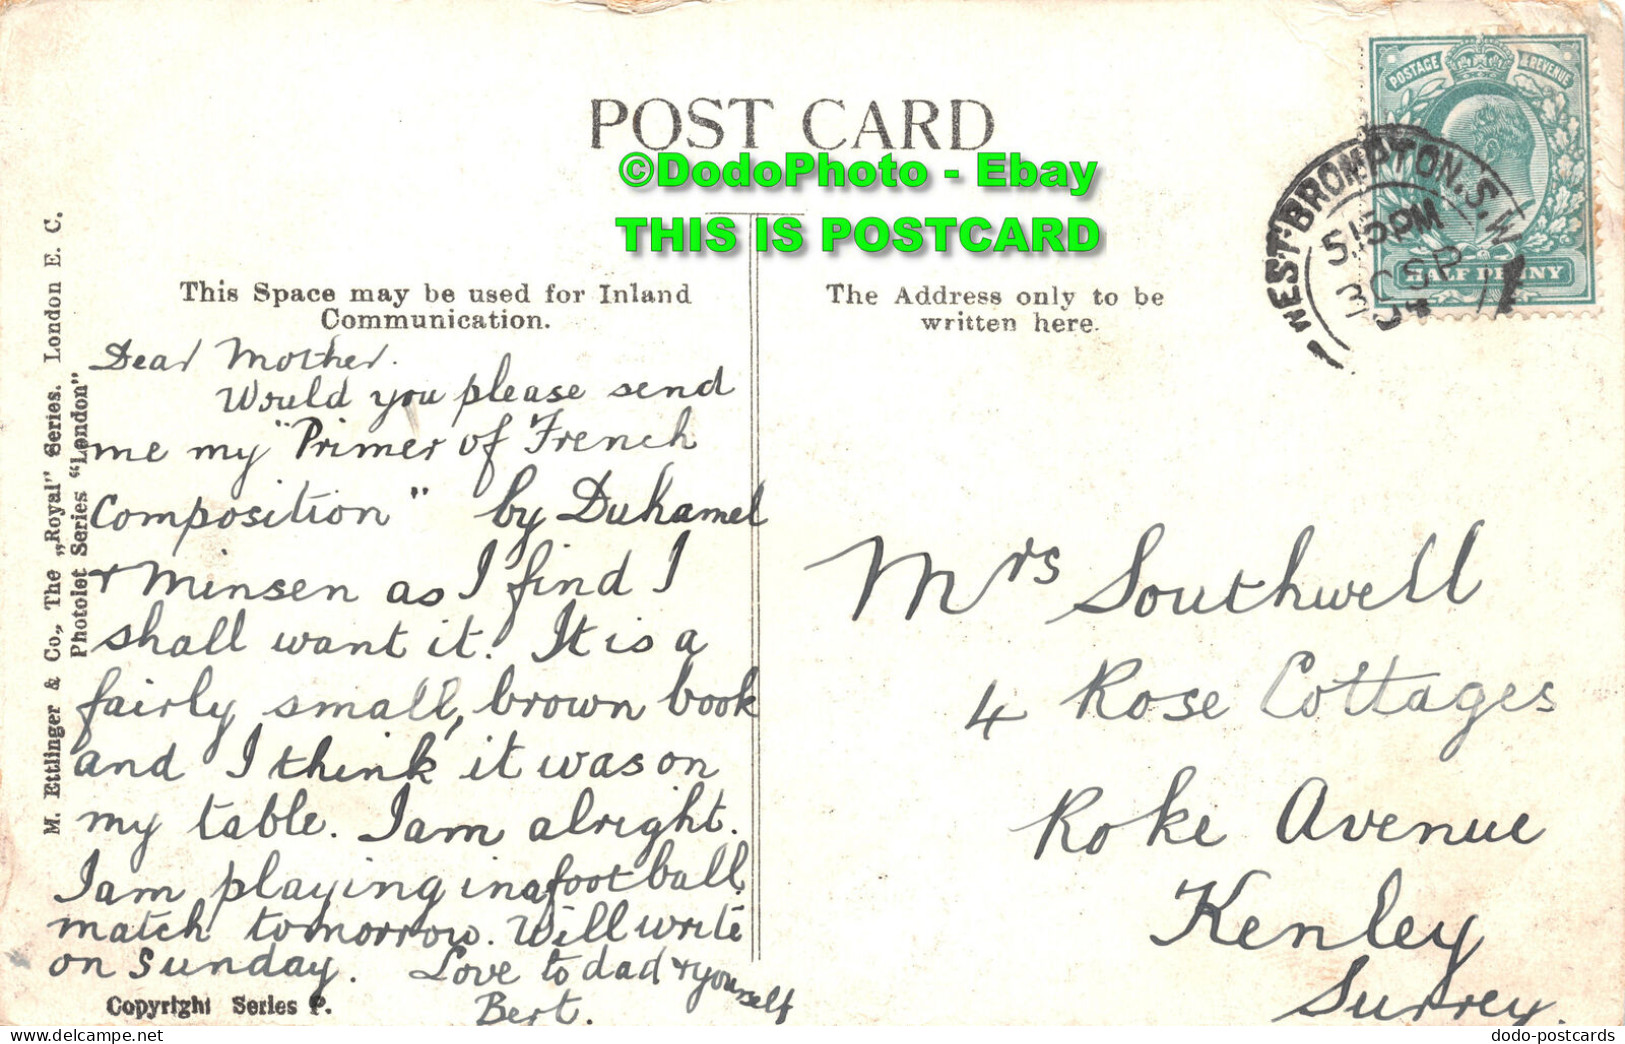 POST CARD
©DodoPhoto - Ebay
THIS IS POSTCARD
POSTAGE & REVENUE
HALF PENNY
WEST BROMPTON. S.W.
5.15PM
SP
07
M. Ettlinger & Co., The „Royal" Series. London E. C.
Photolet Series "London"
This Space may be used for Inland
Communication.
The Address only to be
written here.
Dear Mother.
Would you please send
me my "Primer of French
Composition" by Duhamel
+ Minsen as I find I
shall want it. It is a
fairly small, brown book
and I think it was on
my table. I am alright.
I am playing in a football
match tomorrow. Will write
on Sunday. Love to dad + yourself
Bert.
Copyright Series P.
Mrs Southwell
4 Rose Cottages
Roke Avenue
Kenley
Surrey.
dodo-postcards